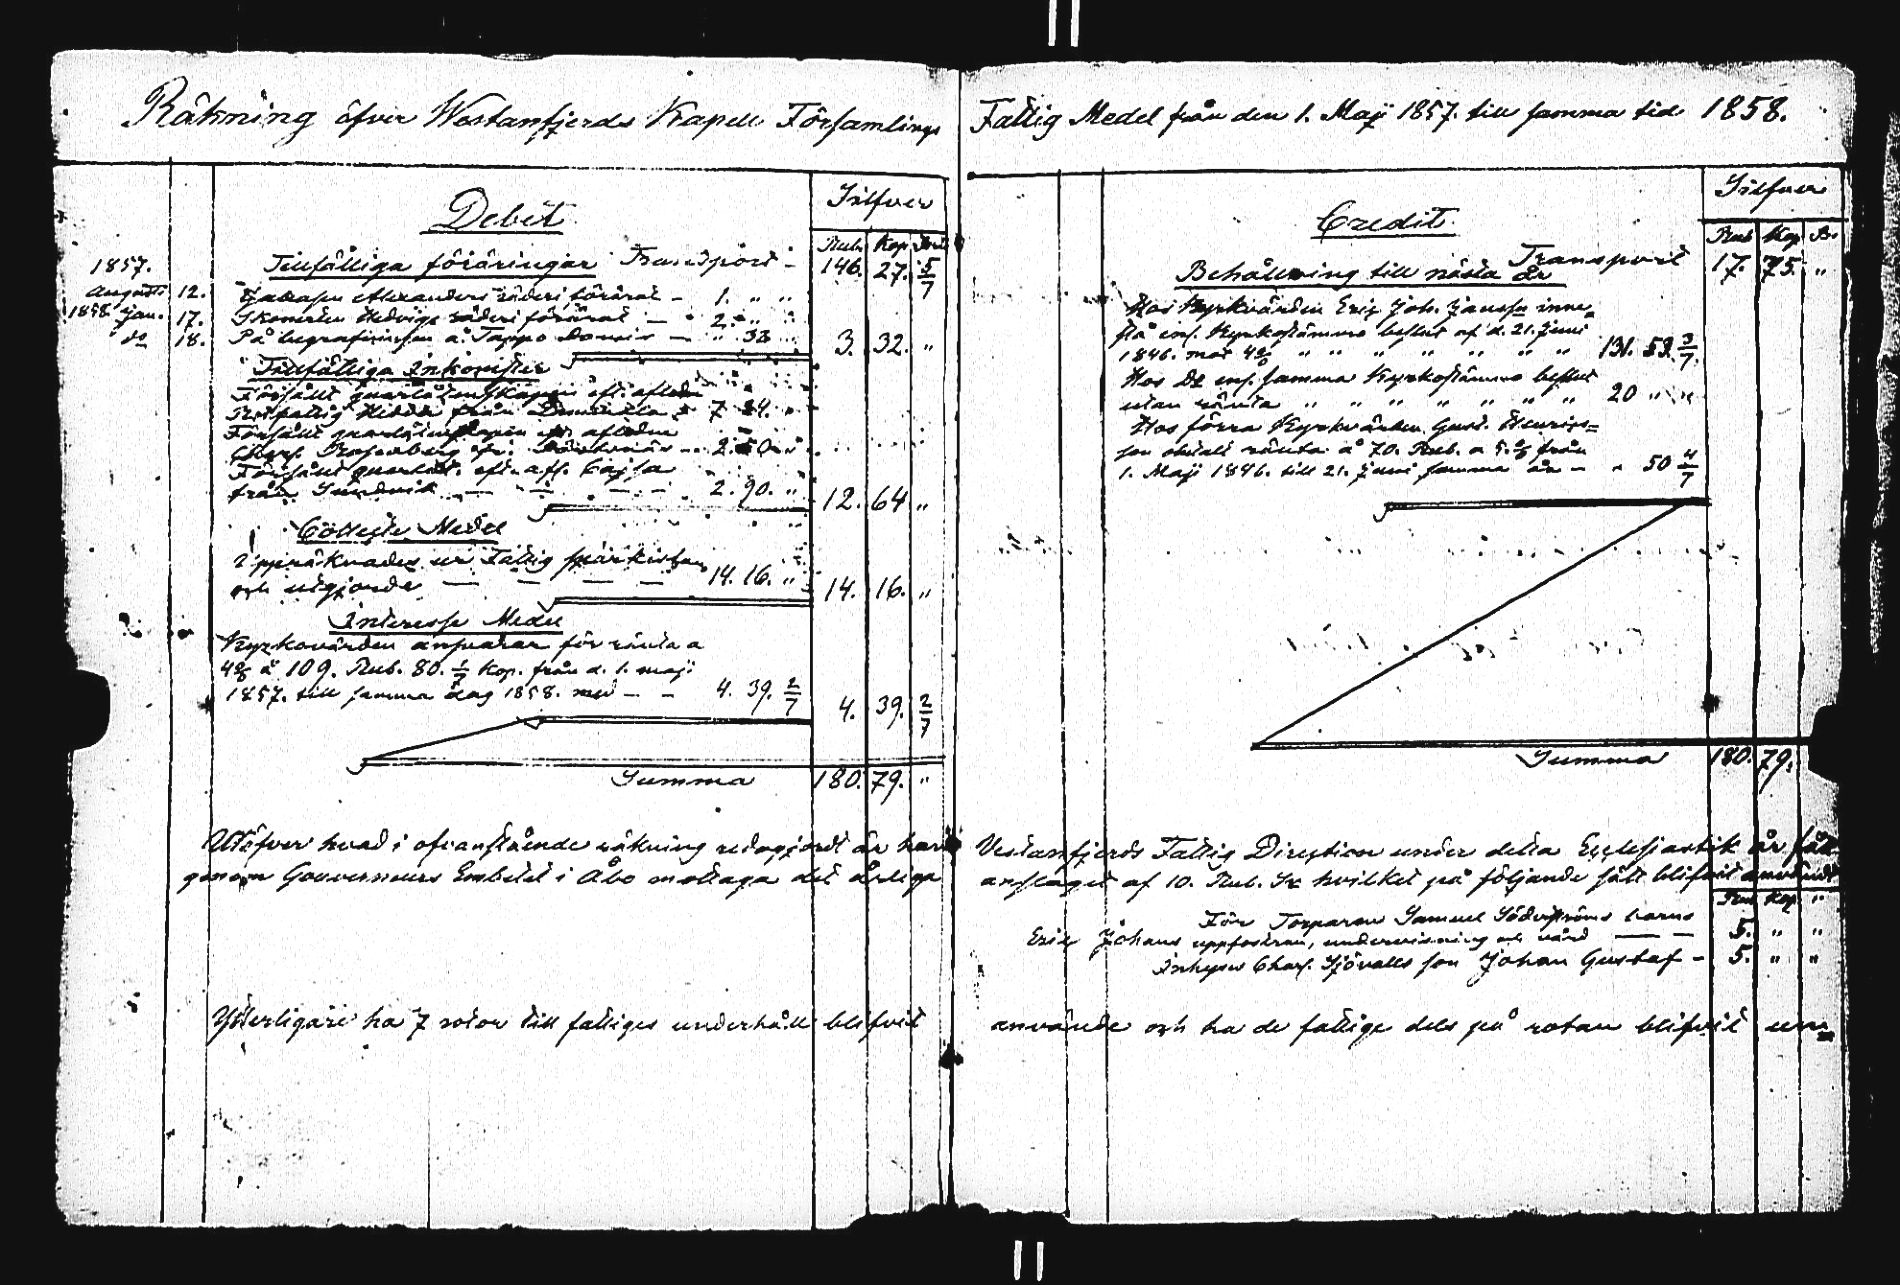 Räkning öfver Westanfjerds Kapell Församlings Fattig Medel från den 1. Maji 1857. till samma tid 1858.
Debet
Silfver
Rub. Kop.
Tillfälliga föräringar Transport 146. 27. 5/7
1857.
Augusti 12. Alexanders förärat 1. " "
1858 Jan. 17. Hedvigs förärat 2. " "
do 18. På begrafningen å Tappo " 32
3. 32. "
Tillfälliga Inkomster
Försålt qvarlåtenskapen eft. aflidne
från 7. 24. "
Försålt aflidne
Rosenberg fr. 2. 50. "
Försålt qvarlåt. eft. afl. Cajsa
från Sundvik 2. 90. "
12. 64 "
Collekte Medel
Uppräknades ur Fattig sparkistan
och utgjorde 14. 16. " 14. 16. "
Interesse Medel
Kyrkovärden ansvarar för ränta a
4% å 109. Rub. 80. 1/7 Kop. från d. 1. maji
1857. till samma dag 1858. med 4. 39. 2/7 4. 39. 2/7
Summa 180. 79. "
Credit
Silfver
Rub Kop
Transport 17. 75. "
Behållning till nästa år
Hos Kyrkvärden Erik Joh. Jansson inne=
stå enl. Kyrkostämmo beslut af d. 21. Juni
1846. mot 4% " " " " " " " 131. 53. 3/7
Hos Do enl. samma Kyrkostämmo beslut
utan ränta " " " " " " " 20 " "
Hos förra Kyrkvärden Gust. Henriks=
son obetalt ränta å 70. Rub. a 5% från
1. Maji 1846. till 21. Juni samma år - " 50 4/7
Summa 180. 79.
Utöfver hvad i ofvanstående räkning redogjordt är har Vestanfjerds Fattig Direction under detta Ecclesiastik år fått
genom Gouverneurs Embetet i Åbo mottaga det årliga anslaget af 10. Rub. Sr hvilket på följande sätt blifvit användt
Rub. Kop. "
För Torparen Samuel Söderströms barns
Erik Johans uppfostran, undervisning och vård 5. " "
Inhyses Charl. Sjövalls son Johan Gustaf - 5. " "
Ytterligare ha 7 rotor till fattiges underhåll blifvit använde och ha de fattige dels på rotan blifvit un=